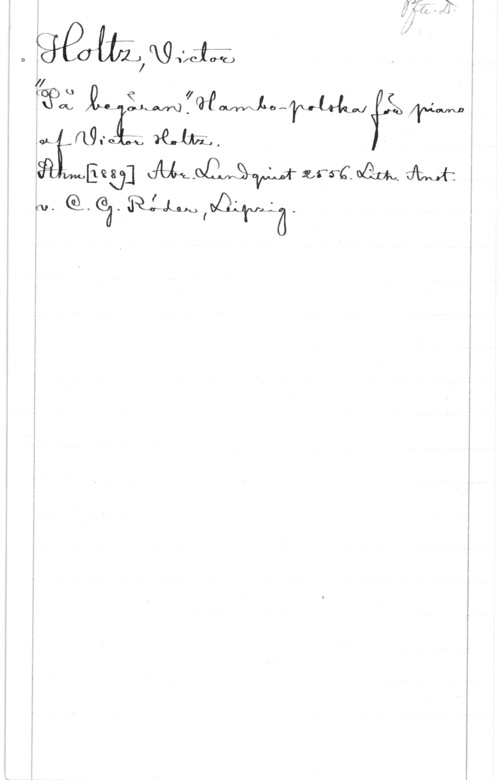 Pfte. D.
Holtz, Victor
"På begäran". Hambo-polska för piano
af Victor Holtz.
Sthm [1889] Abr. Lundquist 2556. Lith. Anst.
v. C. G. Röder, Leipzig.